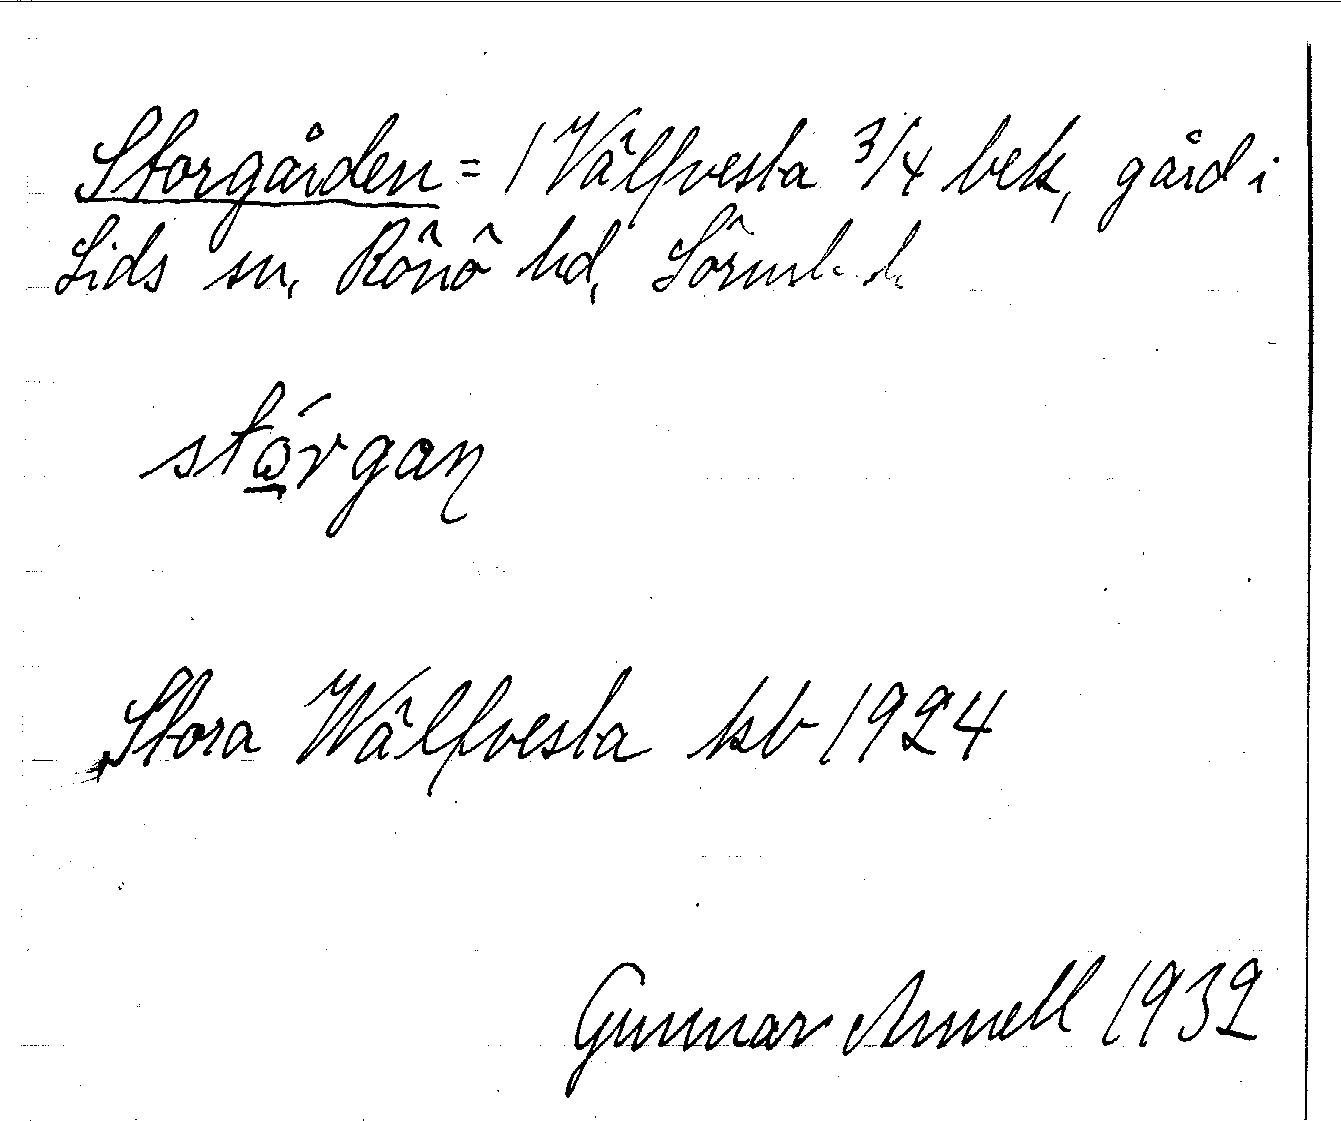 Storgården = 1 Välfvesta 3/4 bek, gård i
Lids sn, Rönö hd,
stórgaŋ
Stora Wälfvesta kb 1924
Gunnar Amell 1932